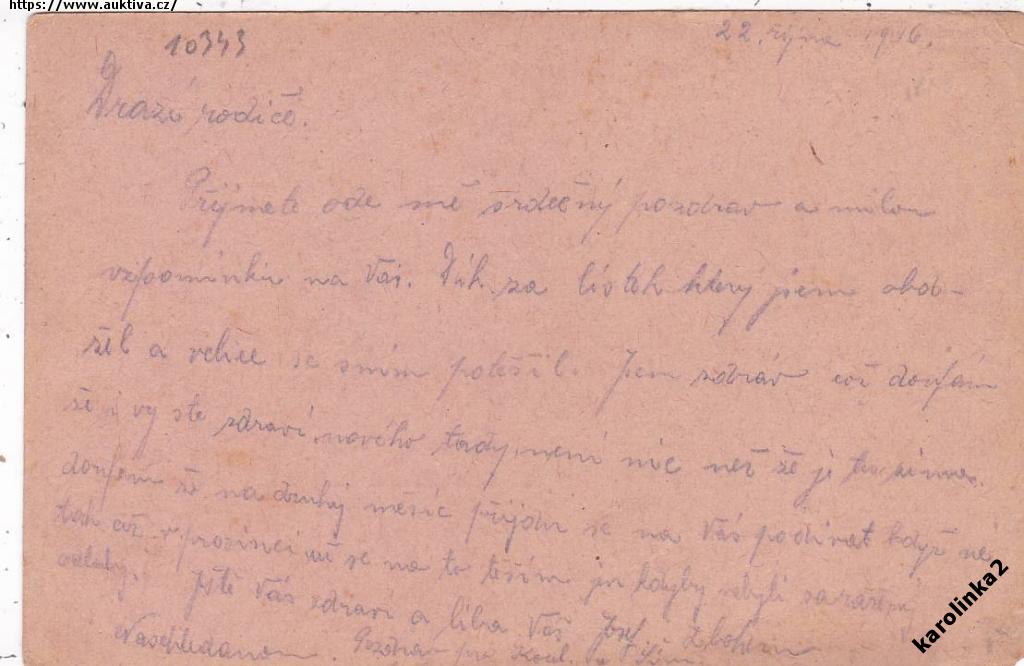 https://www.auktiva.cz/
10343
22. října 1916.
Drazí rodiče.
Přijmete ode mě srdečný pozdrav a milou
vzpomínku na Vás. Dík za lístek který jsem obdr-
žel a velice se s ním potěšil. Jsem zdráv což doufám
že i vy ste zdraví, nového tady není nic než že je tu zima.
doufám že na druhý měsíc přijdu se na Vás podívat když né
tak až v prosinci už se na to těším jen kdyby nebyli zaražený
Ještě Vás zdraví a líbá Váš Josef. Zbohem
Naschledanou. Pozdrav
karolinka2